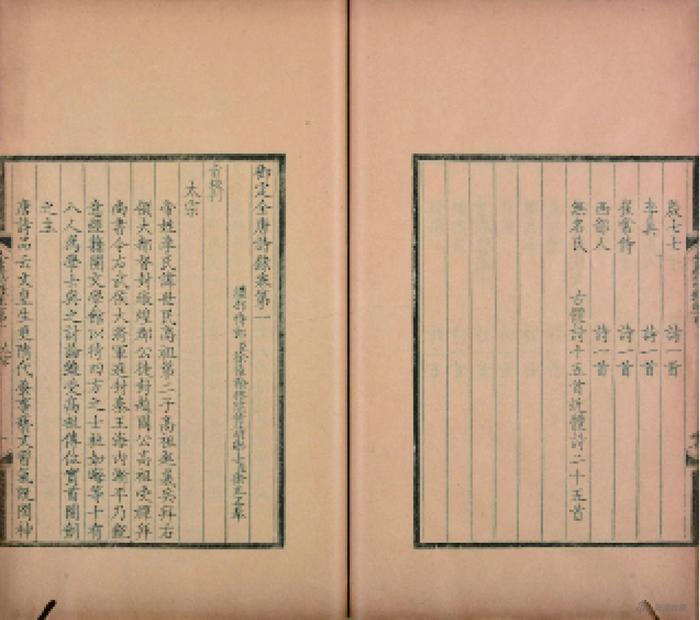 殷七七　詩一首
李真　詩一首
崔常侍　詩一首
西部人　詩一首
無名氏　古體詩十五首近體詩二十五首
御定全唐詩錄卷第一
太宗
帝姓李氏諱世民高祖第二子高祖起義兵拜右
領大都督封燉煌郡公徙封趙國公高祖受禪拜
尚書令右武侯大將軍進封秦王海內漸平乃銳
意經籍開文學館以待四方之士杜如晦等十有
八人為學士與之討論受高祖傳位實首開創
之主
唐詩品云文皇生更隋代兼事藝文習氣既閑神